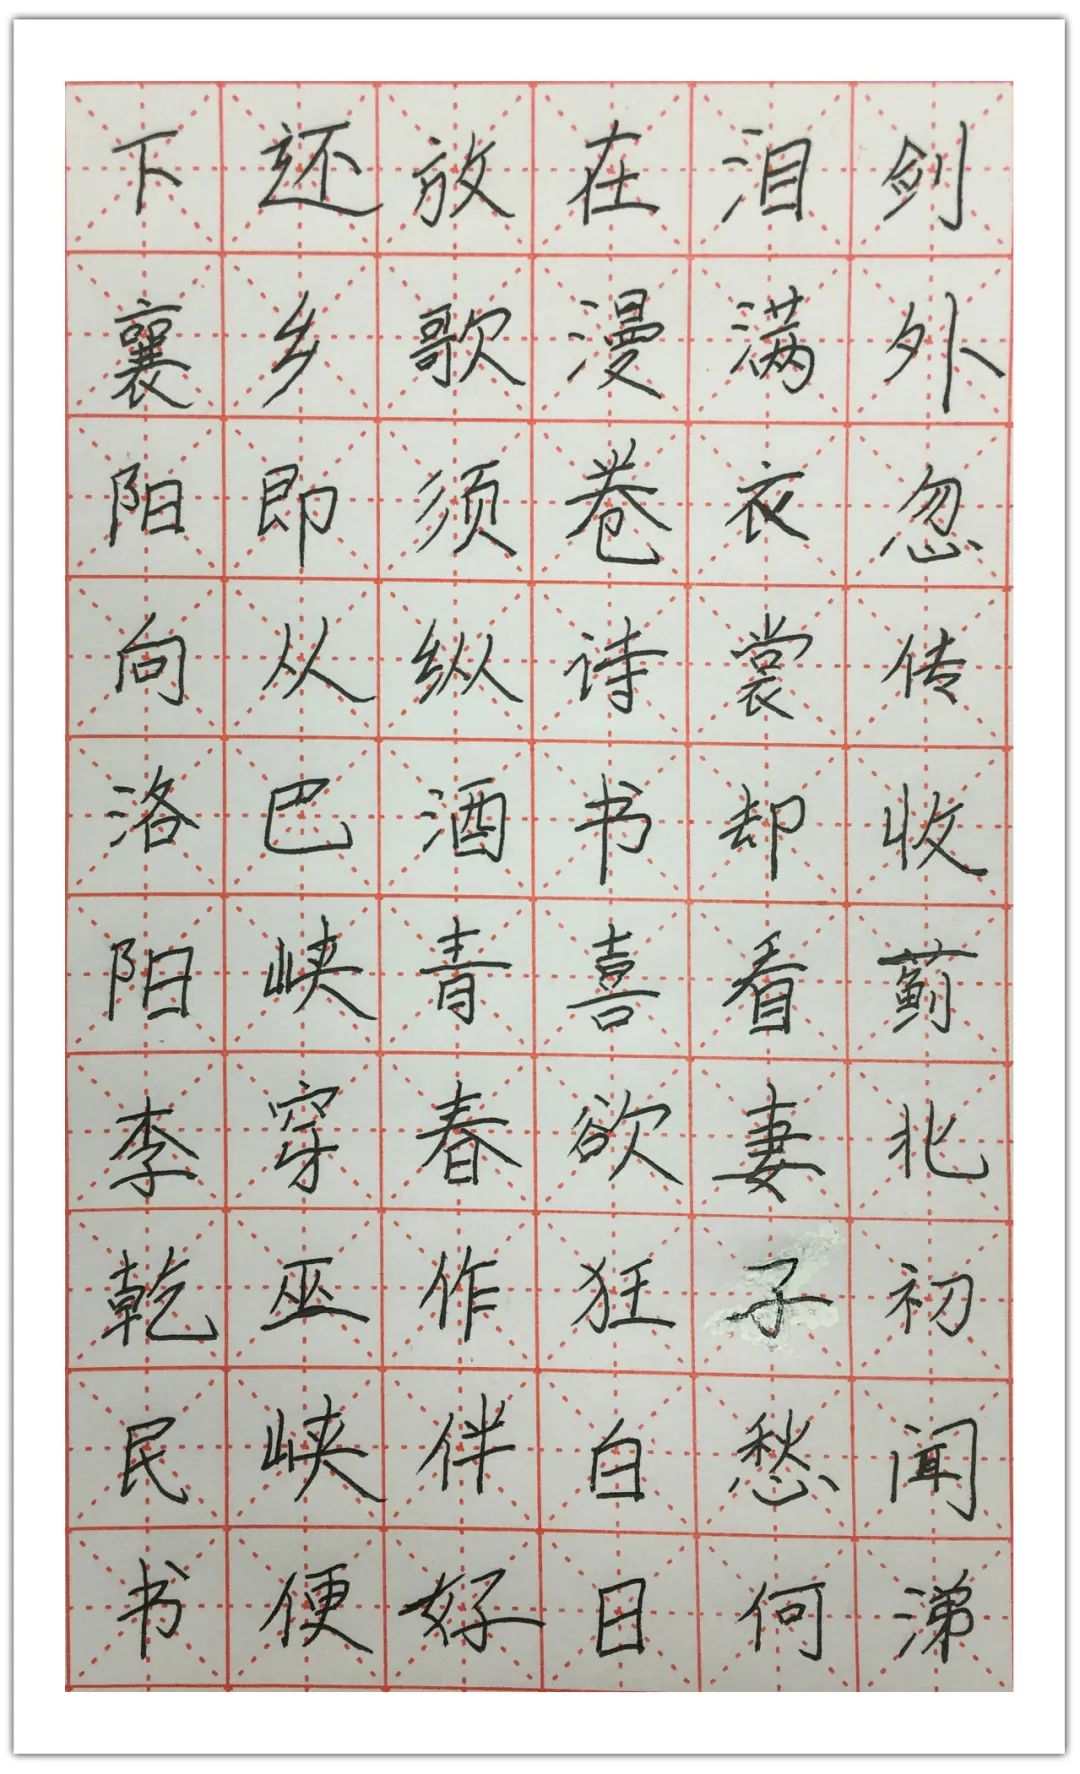 剑外忽传收蓟北初闻涕
泪满衣裳却看妻子愁何
在漫卷诗书喜欲狂白日
放歌须纵酒青春作伴好
还乡即从巴峡穿巫峡便
下襄阳向洛阳李乾民书